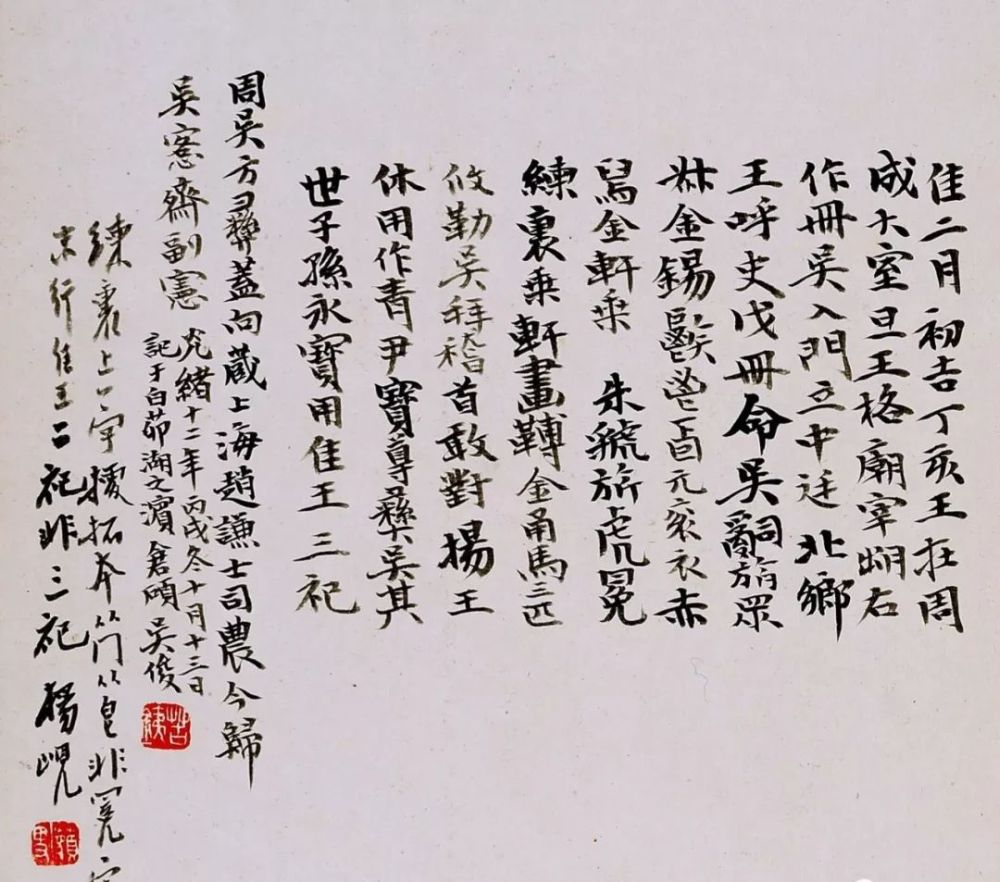 隹二月初吉丁亥王在周
成大室旦王格廟宰朏右
作冊吳入門立中廷北鄉
王呼史戊冊命吳司旃眾
叔金錫鬯卣元袞衣赤
舄金軒乘 朱虢旂虎冕
練裏乘軒畫轉金甬馬三匹
攸勒吳拜稽首敢對揚王
休用作青尹寶尊彝吳其
世子孫永寶用隹王三祀
周吳方彝蓋向藏上海趙謙士司農今歸
吳窓齋副憲
光緒十二年丙戌冬十月十三日
記于白茆湖之濱倉碩吳俊
練裏上一字擾拓本
末行隹王二祀非三祀 楊峴